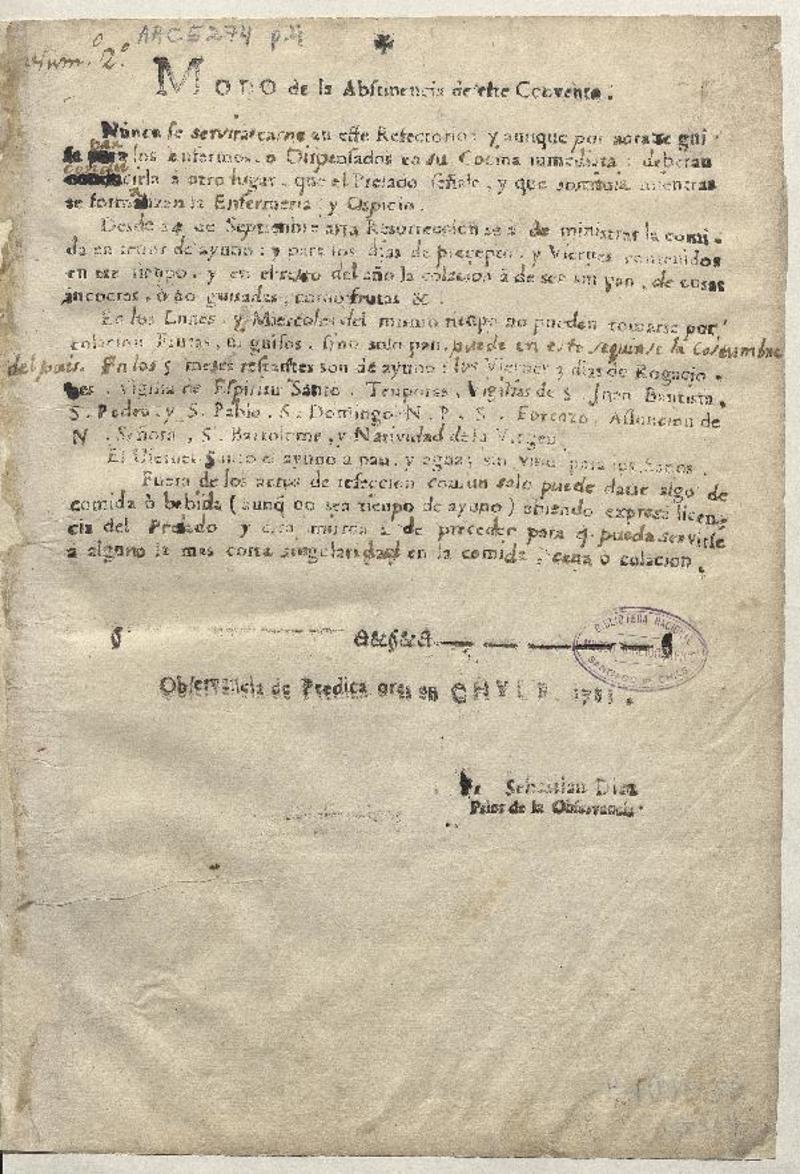 Num.º 2.º
ARCE274 p.4
Modo de la Abstinencia de este Convento.
Nunca se servirá carne en este Refectorio: y aunque por aora se gui
se para los enfermos, o Dispensados en su Cocina inmediata: deberan
conducirla á otro lugar, que el Prelado señale, y que mientras
se formalizen la Enfermeria, y Ospicio.
Desde 14 de Septiembre asta Resurreccion se á de ministrar la comi-
da en tenor de ayuno: y para los dias de precepto, y Viernes contenidos
en ese tiempo, y en el resto del año la colacion á de ser sin pan, de cosas
incoctas, ò no guisadas, como frutas &.
En los Lunes, y Miercoles del mismo tiempo no pueden tomarse por
colacion frutas, ni guisos, sino solo pan, puede en esto seguirse la costumbre
del pais. En los 5 meses restantes son de ayuno: los Viernes 3 dias de Rogacio-
nes, Vigilia de Espiritu Santo, Temporas, Vigilias de S. Juan Bautista,
S. Pedro, y S. Pablo, S. Domingo N. P., S. Lorenzo, Assuncion de
N. Señora, S. Bartolome, y Natividad de la Virgen.
El Viernes Santo el ayuno a pan, y agua; sin vino para los sanos.
Fuera de los actos de refeccion comun solo puede darse algo de
comida ò bebida (aunq no sea tiempo de ayuno) abiendo expresa licen-
cia del Prelado y esta misma á de preceder para q pueda servirse
a alguno la mas corta singularidad en la comida, cena o colacion.
BIBLIOTECA NACIONAL
SANTIAGO DE CHILE
Observancia de Predicadores en CHYLE 1783.
Fr Sebastian Diaz
Prior de la Observancia